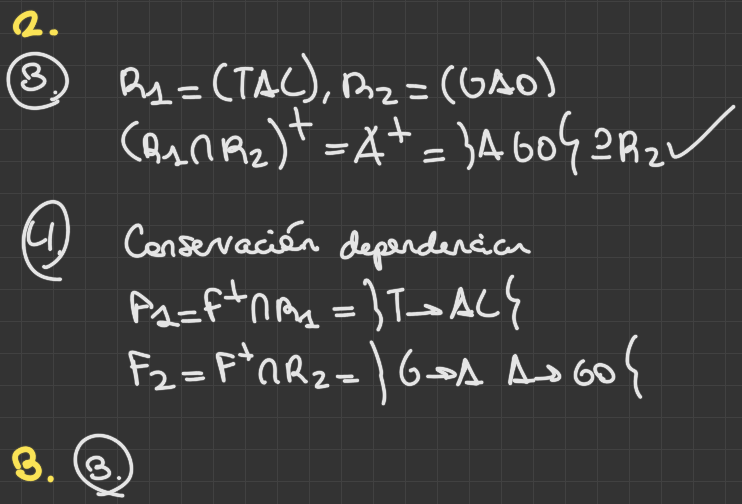 2.
3. R1 = (TAC), R2 = (GAO)
(R1∩R2)+ = A+ = }AGO{ ⊇R2 ✓
4. Conservación dependencias
F1 = F+∩R1 = }T→AC{
F2 = F+∩R2 = }G→A A→GO{
3. 3.